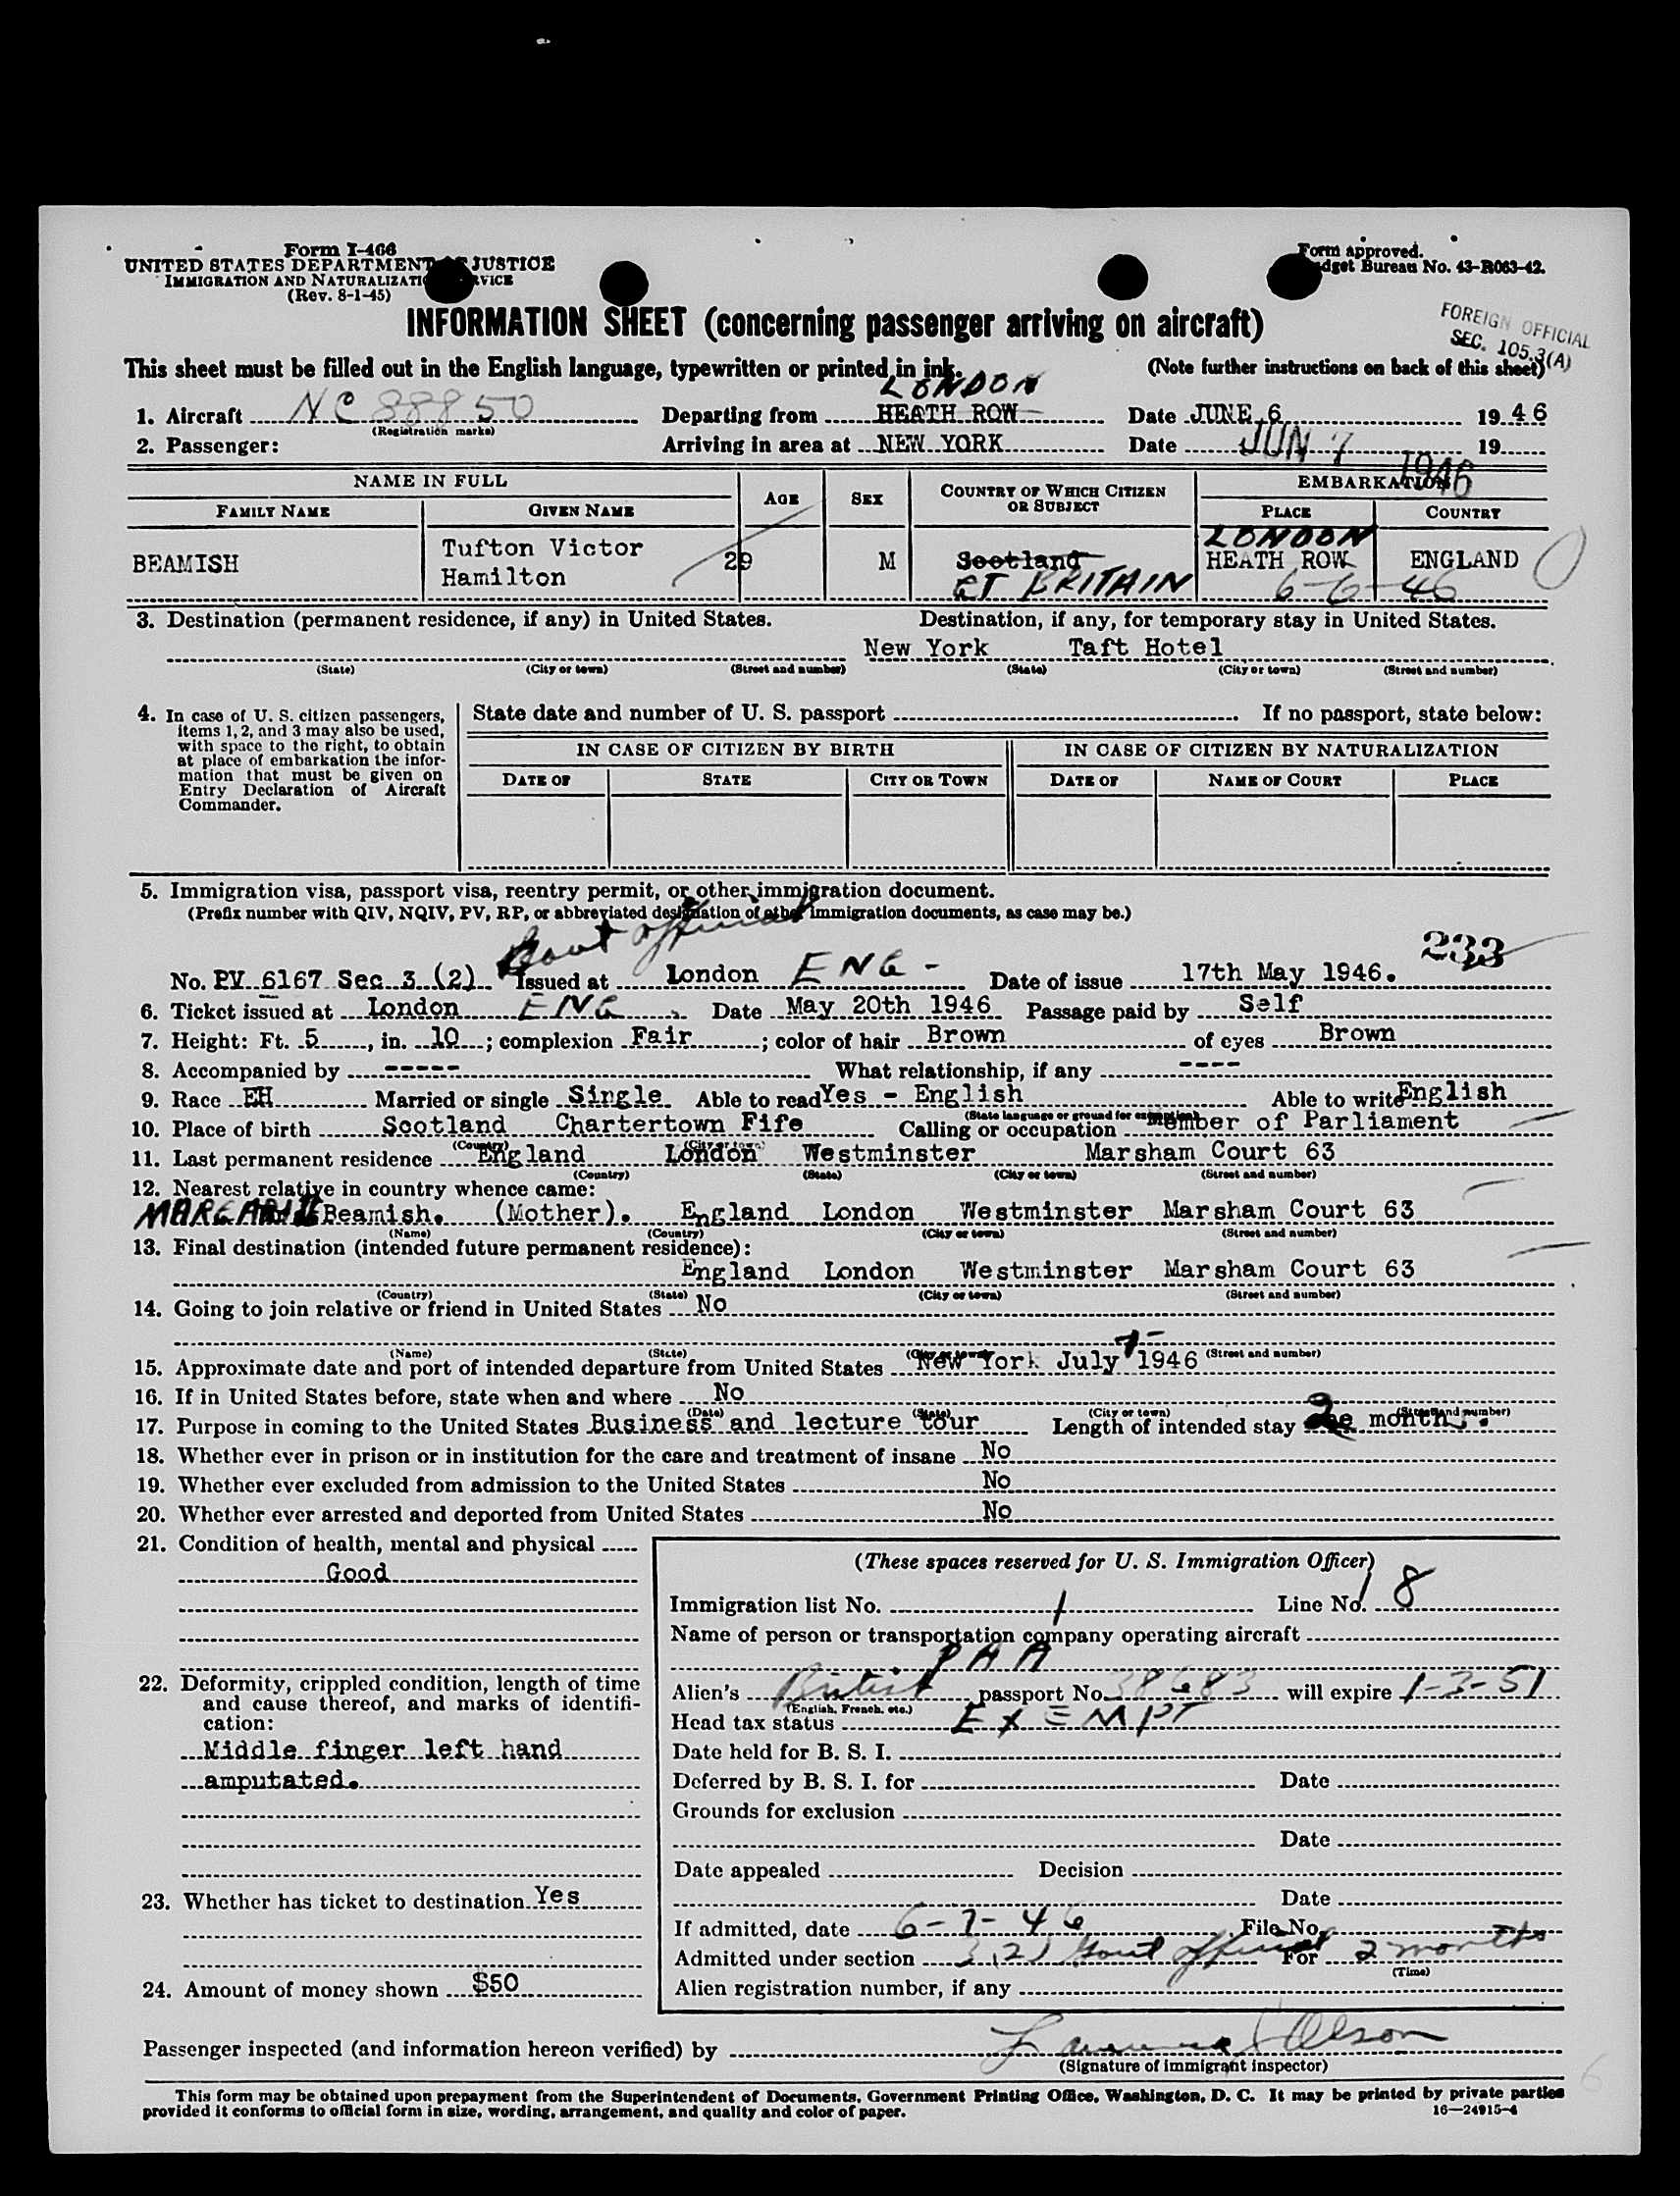 Form I-466
UNITED STATES DEPARTMENT JUSTICE
IMMIGRATION AND NATURALIZATI VICE
(Rev. 8-1-45)
Form approved.
dget Bureau No. 43-R063-42.
INFORMATION SHEET (concerning passenger arriving on aircraft)
FOREIGN OFFICIAL
SEC. 105.3(A)
This sheet must be filled out in the English language, typewritten or printed in ink. (Note further instructions on back of this sheet)
LONDON
1. Aircraft NC 88850 Departing from HEATH ROW Date JUNE 6 1946
(Registration marks)
2. Passenger: Arriving in area at NEW YORK Date JUN 7 19
1946
NAME IN FULL AGE SEX COUNTRY OF WHICH CITIZEN OR SUBJECT EMBARKATION
FAMILY NAME GIVEN NAME PLACE COUNTRY
LONDON
BEAMISH Tufton Victor Hamilton 29 M Scotland HEATH ROW ENGLAND
GT BRITAIN 6-6-46
3. Destination (permanent residence, if any) in United States. Destination, if any, for temporary stay in United States.
New York Taft Hotel
(State) (City or town) (Street and number) (State) (City or town) (Street and number)
4. In case of U. S. citizen passengers, items 1, 2, and 3 may also be used, with space to the right, to obtain at place of embarkation the information that must be given on Entry Declaration of Aircraft Commander.
State date and number of U. S. passport If no passport, state below:
IN CASE OF CITIZEN BY BIRTH IN CASE OF CITIZEN BY NATURALIZATION
DATE OF STATE CITY OR TOWN DATE OF NAME OF COURT PLACE
5. Immigration visa, passport visa, reentry permit, or other immigration document.
(Prefix number with QIV, NQIV, PV, RP, or abbreviated designation of other immigration documents, as case may be.)
Govt official
233
No. PV 6167 Sec 3 (2) Issued at London ENG - Date of issue 17th May 1946.
6. Ticket issued at London ENG. Date May 20th 1946 Passage paid by Self
7. Height: Ft. 5, in. 10; complexion Fair; color of hair Brown of eyes Brown
8. Accompanied by ----- What relationship, if any ----
9. Race EH Married or single Single Able to read Yes - English Able to write English
(State language or ground for exemption)
10. Place of birth Scotland Chartertown Fife Calling or occupation Member of Parliament
(Country) (City or town)
11. Last permanent residence England London Westminster Marsham Court 63
(Country) (State) (City or town) (Street and number)
12. Nearest relative in country whence came:
Beamish. (Mother). England London Westminster Marsham Court 63
(Name) (Country) (City or town) (Street and number)
13. Final destination (intended future permanent residence):
England London Westminster Marsham Court 63
(Country) (State) (City or town) (Street and number)
14. Going to join relative or friend in United States No
(Name) (State) (City or town) (Street and number)
15. Approximate date and port of intended departure from United States New York July 7- 1946
16. If in United States before, state when and where No
(Date) (State) (City or town) (Street and number)
17. Purpose in coming to the United States Business and lecture tour Length of intended stay 2 months.
18. Whether ever in prison or in institution for the care and treatment of insane No
19. Whether ever excluded from admission to the United States No
20. Whether ever arrested and deported from United States No
21. Condition of health, mental and physical
Good
22. Deformity, crippled condition, length of time and cause thereof, and marks of identification:
Middle finger left hand
amputated.
23. Whether has ticket to destination Yes
24. Amount of money shown $50
(These spaces reserved for U. S. Immigration Officer)
Immigration list No. 1 Line No. 18
Name of person or transportation company operating aircraft
PAA
Alien's British passport No. 38683 will expire 1-3-51
(English, French, etc.)
Head tax status EXEMPT
Date held for B. S. I.
Deferred by B. S. I. for Date
Grounds for exclusion
Date
Date appealed Decision
Date
If admitted, date 6-7-46 File No.
Admitted under section 3(2) Govt official For 2 months
(Time)
Alien registration number, if any
Passenger inspected (and information hereon verified) by Olson
(Signature of immigrant inspector)
This form may be obtained upon prepayment from the Superintendent of Documents, Government Printing Office, Washington, D. C. It may be printed by private parties
provided it conforms to official form in size, wording, arrangement, and quality and color of paper. 16—24915-4